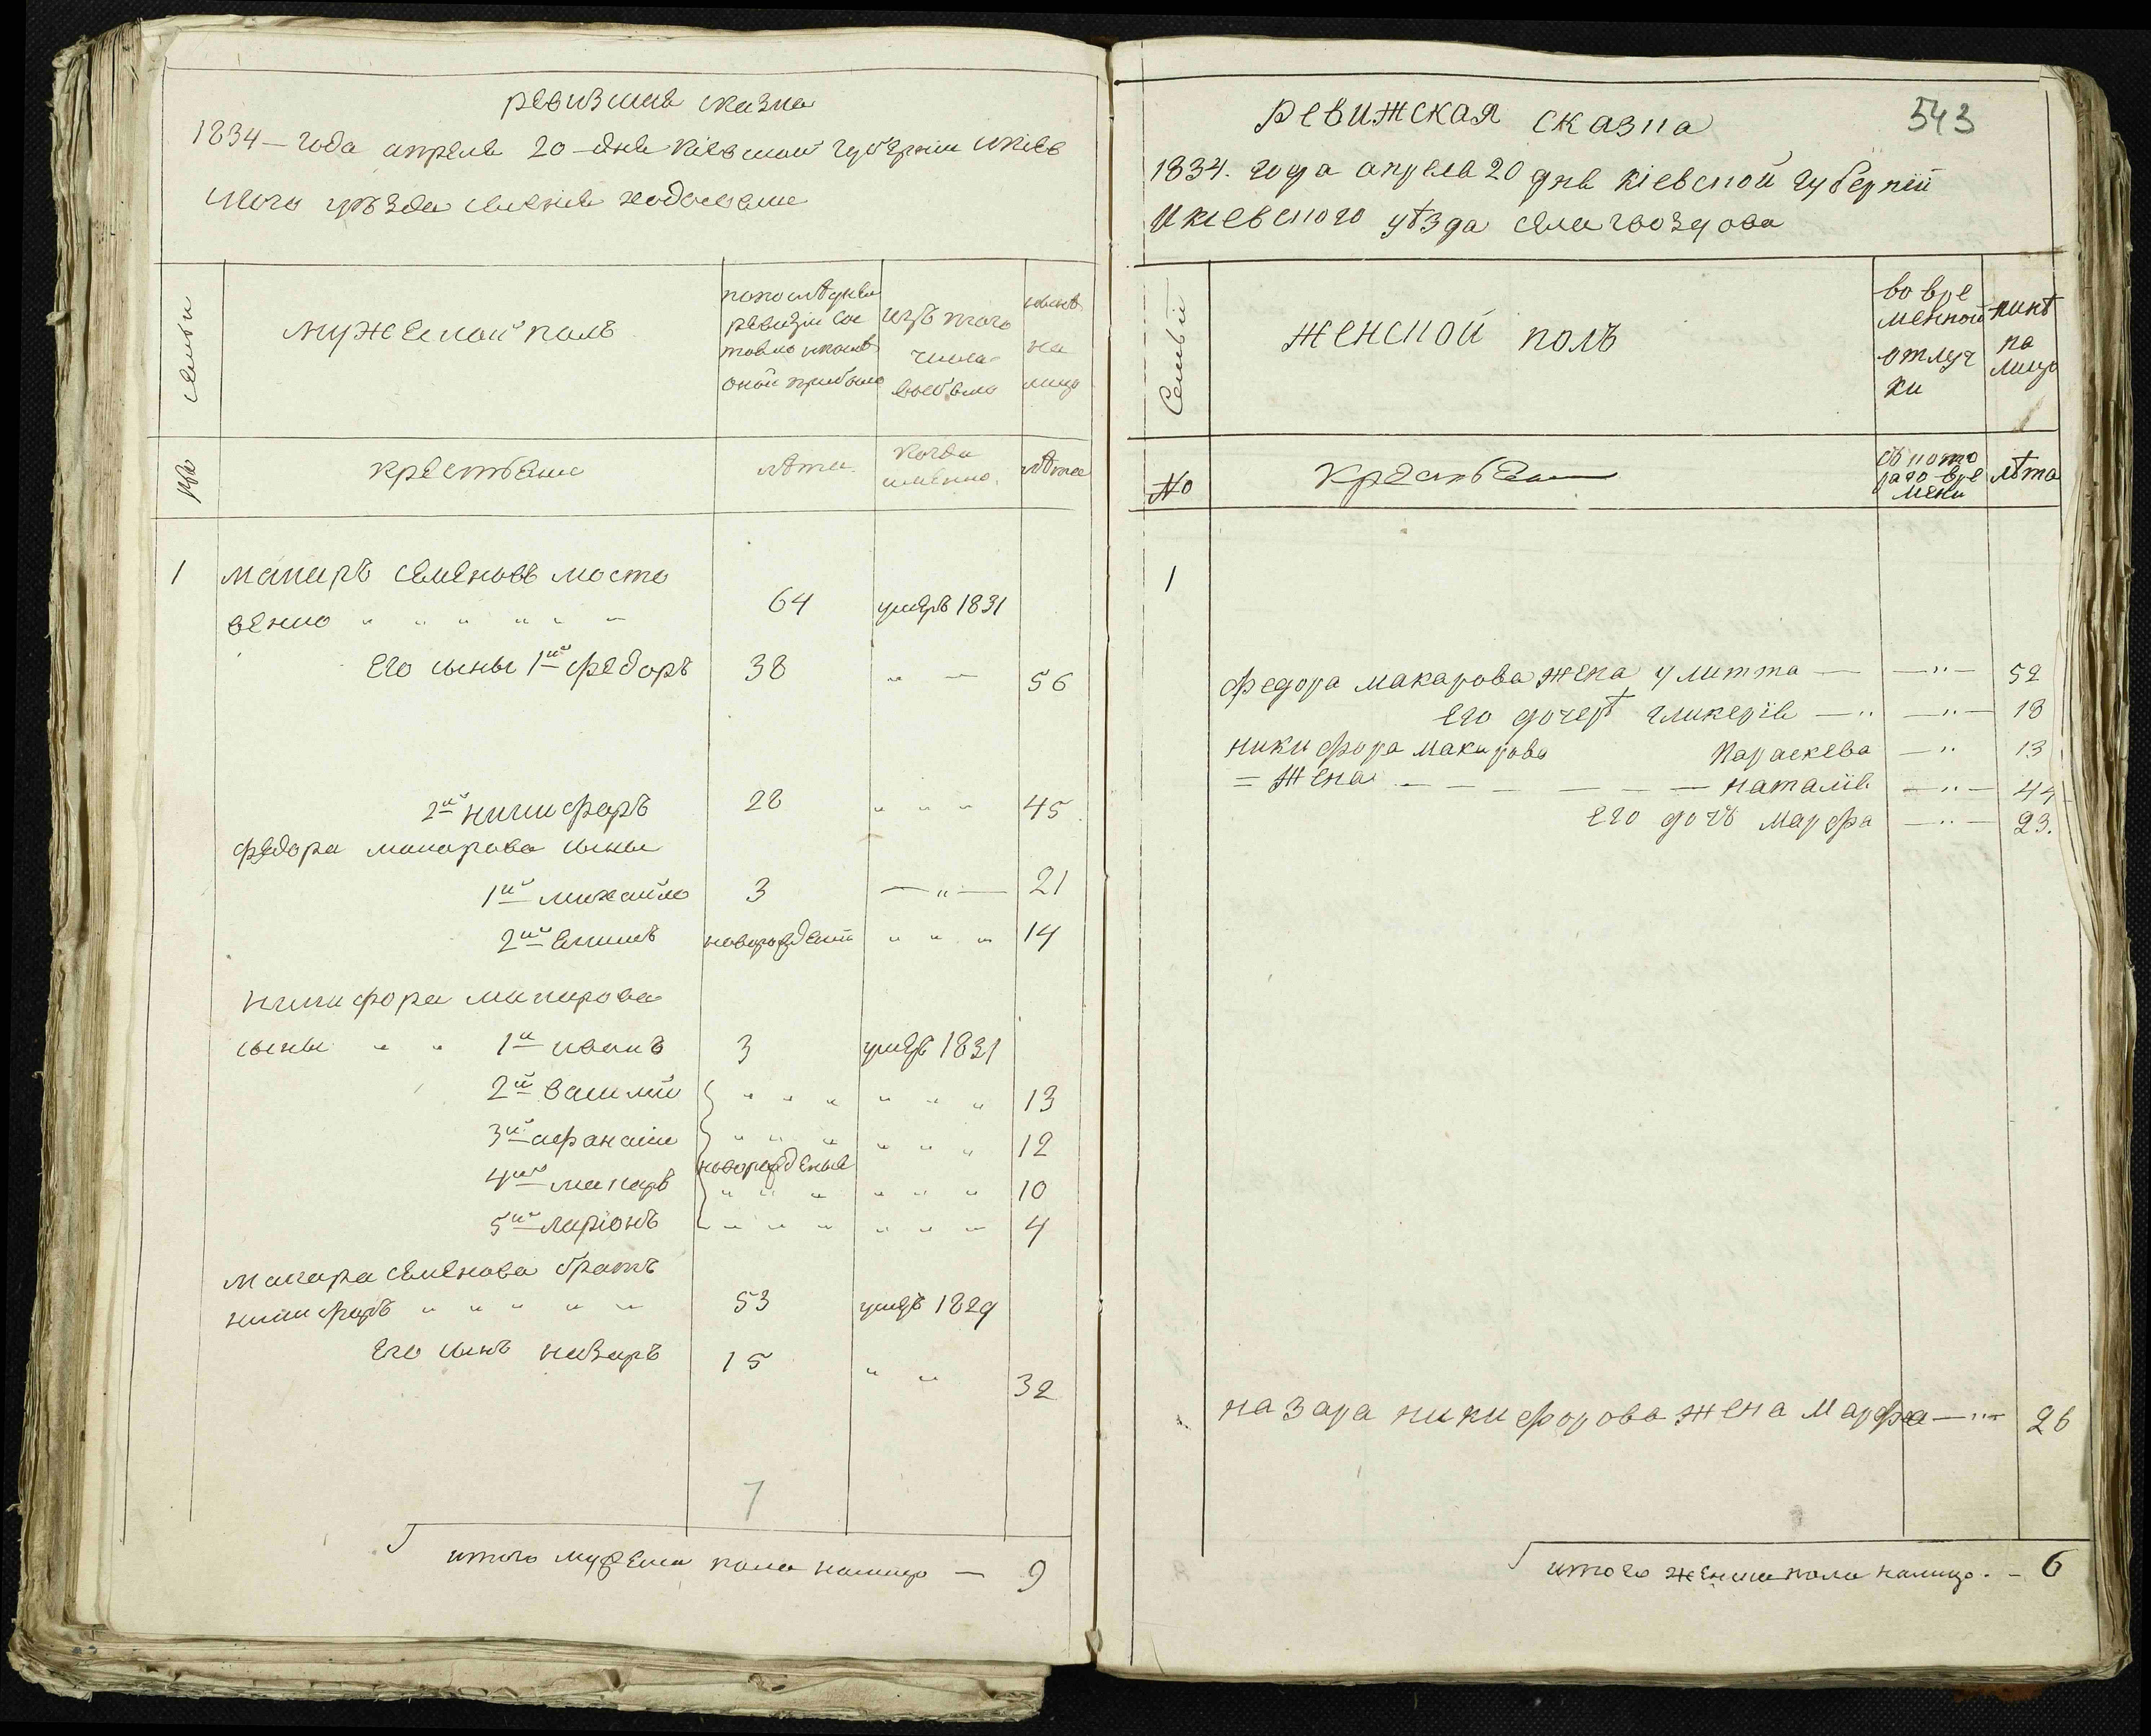 ревизская сказка
1834 – года апреля 20 – дня Кіевской губернии Икіев
ского уѣзда селенія
семьи
мужеской полъ
попоследней
ревизіи сос
тояло ипослѣ
оной прибыло
изъ того
числа
выбыло
нынѣ
на
лицо
№
крестьяне
лѣта
когда
именно.
лѣта
1 макаръ семеновъ мосто
венко " " " " " " 64 умеръ 1831
его сыны 1й федоръ 38 " – 56
2й никифоръ 28 " " " 45
федора макарова сыны
1й михайло 3 — " — 21
2й новорожденъ " " " 14
никифора макарова
сыны " " 1й иванъ 3 умеръ 1831
2й василій " " " " " " 13
3й афанасій " " " " " " 12
новорожденые
4й макаръ " " " " " " 10
5й ларіонъ " " " " " " 4
макара семенова братъ
никифоръ " " " " " 53 умеръ 1829
его сынъ назаръ 15 " " 32
7
итого мужеска пола налицо — 9
543
ревижская сказка
1834. года апреля 20 дня кіевской губерніи
Икіевского уѣзда села гвоздова
Семьи
женской полъ
во вре
менной
отлуч
ки
нинѣ
на
лицо
№
крестьяне
съ кото
раго вре
мени
лѣта
1
федора макарова жена улитта — — " — 52
его дочерѣ гликерія — " — " — 18
никифора макарова Параскева — " 13
= жена — — — — — — наталія — " — 44
его дочъ марфа — " — 23.
назара никифорова жена марфа — " — 26
итого женска пола налицо. – 6